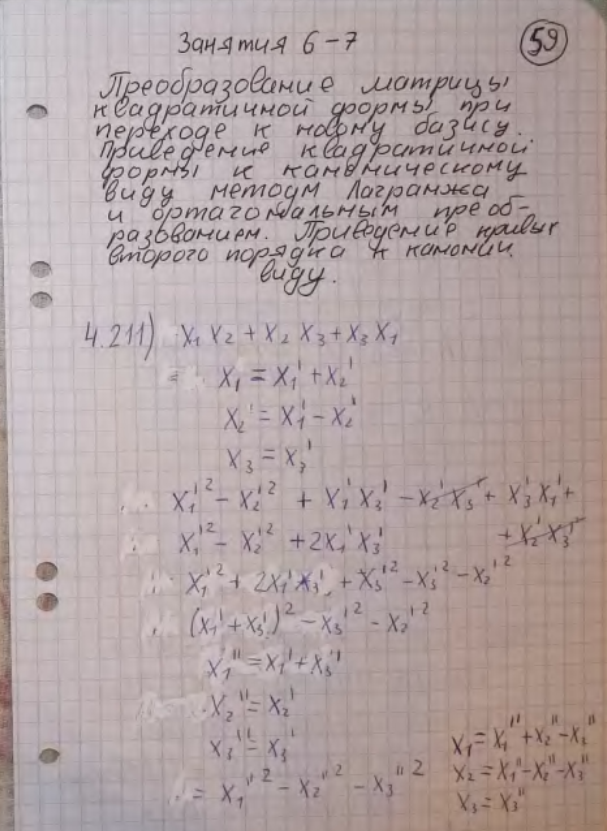 Занятия 6-7
59
Преобразование матрицы
квадратичной формы при
переходе к новому базису.
Приведение квадратичной
формы к каноническому
виду методом Лагранжа
и ортагональным преоб-
разованием. Приведение кривых
второго порядка к канонич.
виду.
4.211) x₁x₂ + x₂x₃ + x₃x₁
x₁ = x₁' + x₂'
x₂ = x₁' - x₂'
x₃ = x₃'
x₁'² - x₂'² + x₁'x₃' - x₂'x₃' + x₃'x₁' +
+ x₂'x₃'
x₁'² - x₂'² + 2x₁'x₃'
x₁'² + 2x₁'x₃' + x₃'² - x₃'² - x₂'²
(x₁' + x₃')² - x₃'² - x₂'²
x₁'' = x₁' + x₃'
x₂'' = x₂'
x₃'' = x₃'
= x₁''² - x₂''² - x₃''²
x₁ = x₁'' + x₂'' - x₃''
x₂ = x₁'' - x₂'' - x₃''
x₃ = x₃''